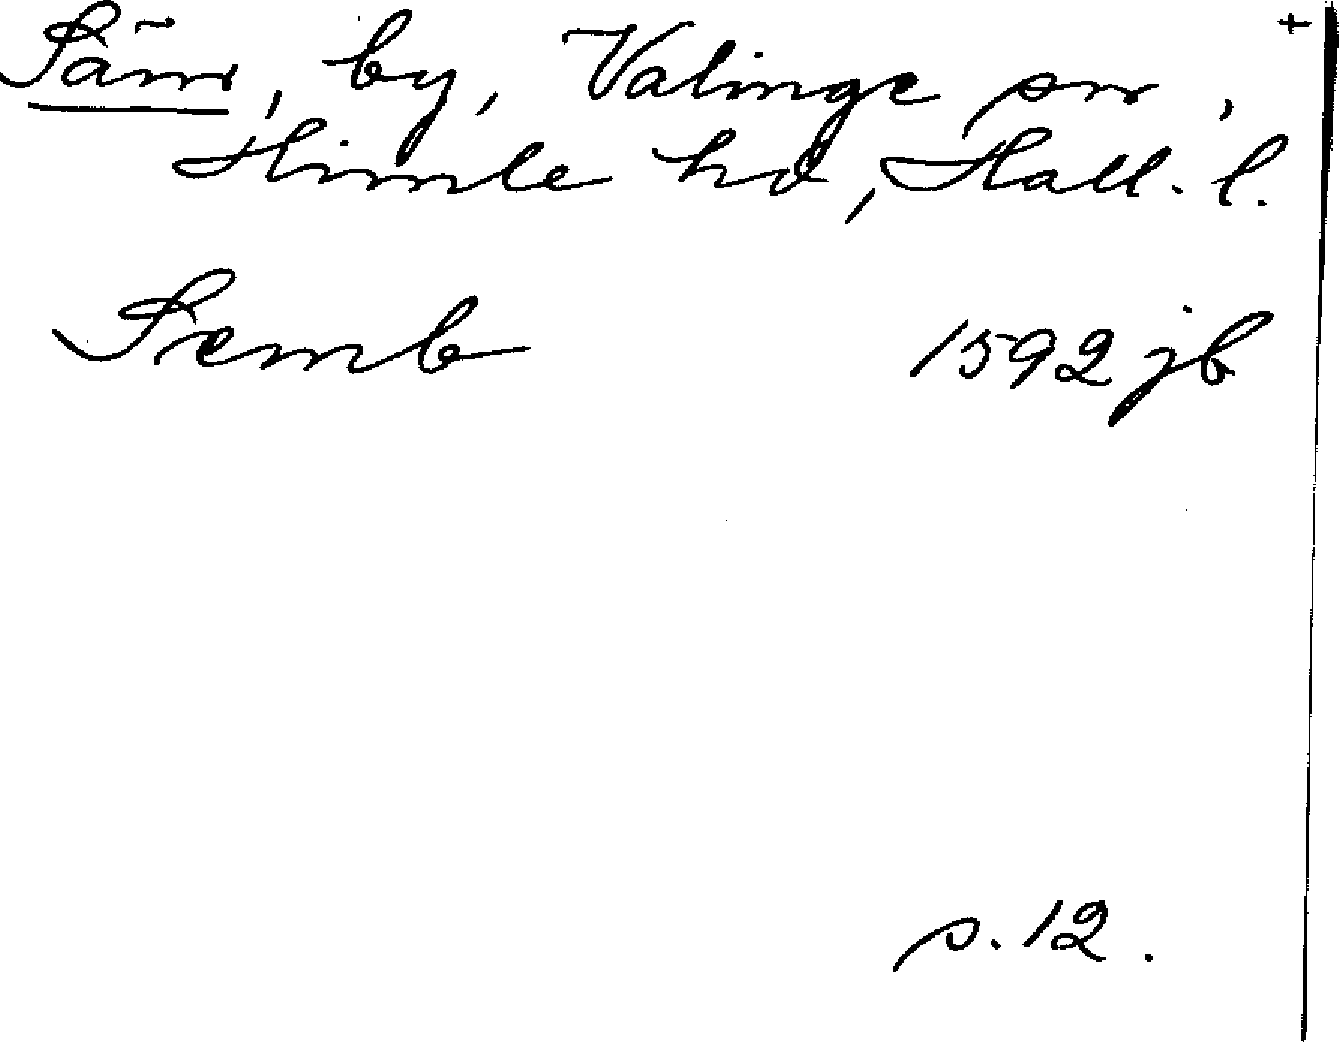 Säm, by, Valinge sn, +
Himle hd, Hall. l.
Semb 1592 jb
s. 12.